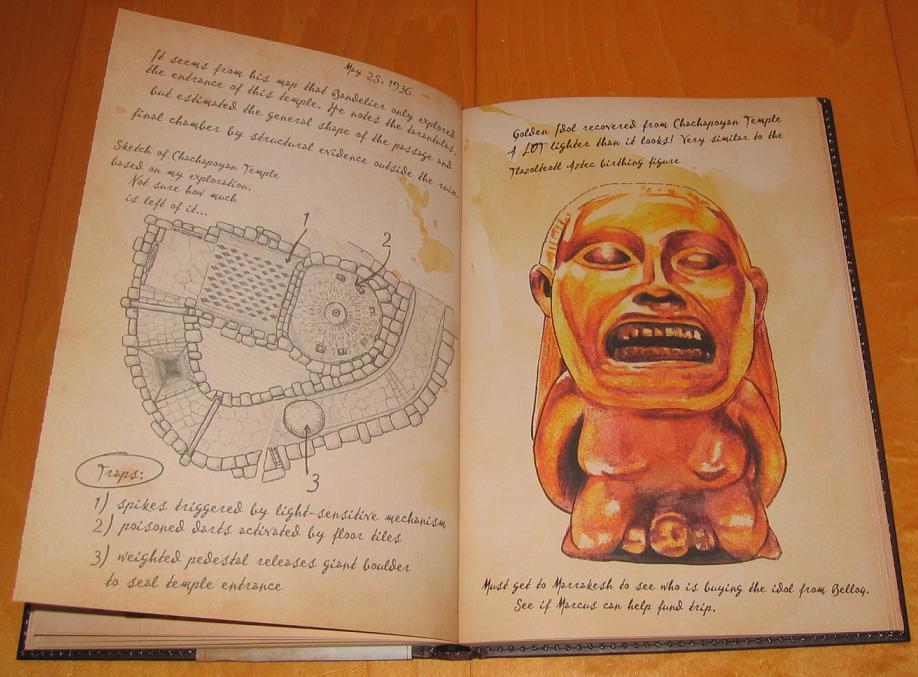 May 25, 1936
It seems from his map that Bandelier only explored
the entrance of this temple. He notes the tarantulas,
but estimated the general shape of the passage and
final chamber by structural evidence outside the ruin.
Sketch of Chachapoyan Temple
based on my exploration.
Not sure how much
is left of it...
1
2
3
Traps:
1) spikes triggered by light-sensitive mechanism
2) poisoned darts activated by floor tiles
3) weighted pedestal releases giant boulder
to seal temple entrance
Golden Idol recovered from Chachapoyan Temple
A LOT lighter than it looks! Very similar to the
Tlazolteotl Aztec birthing figure
Must get to Marrakesh to see who is buying the idol from Belloq.
See if Marcus can help fund trip.